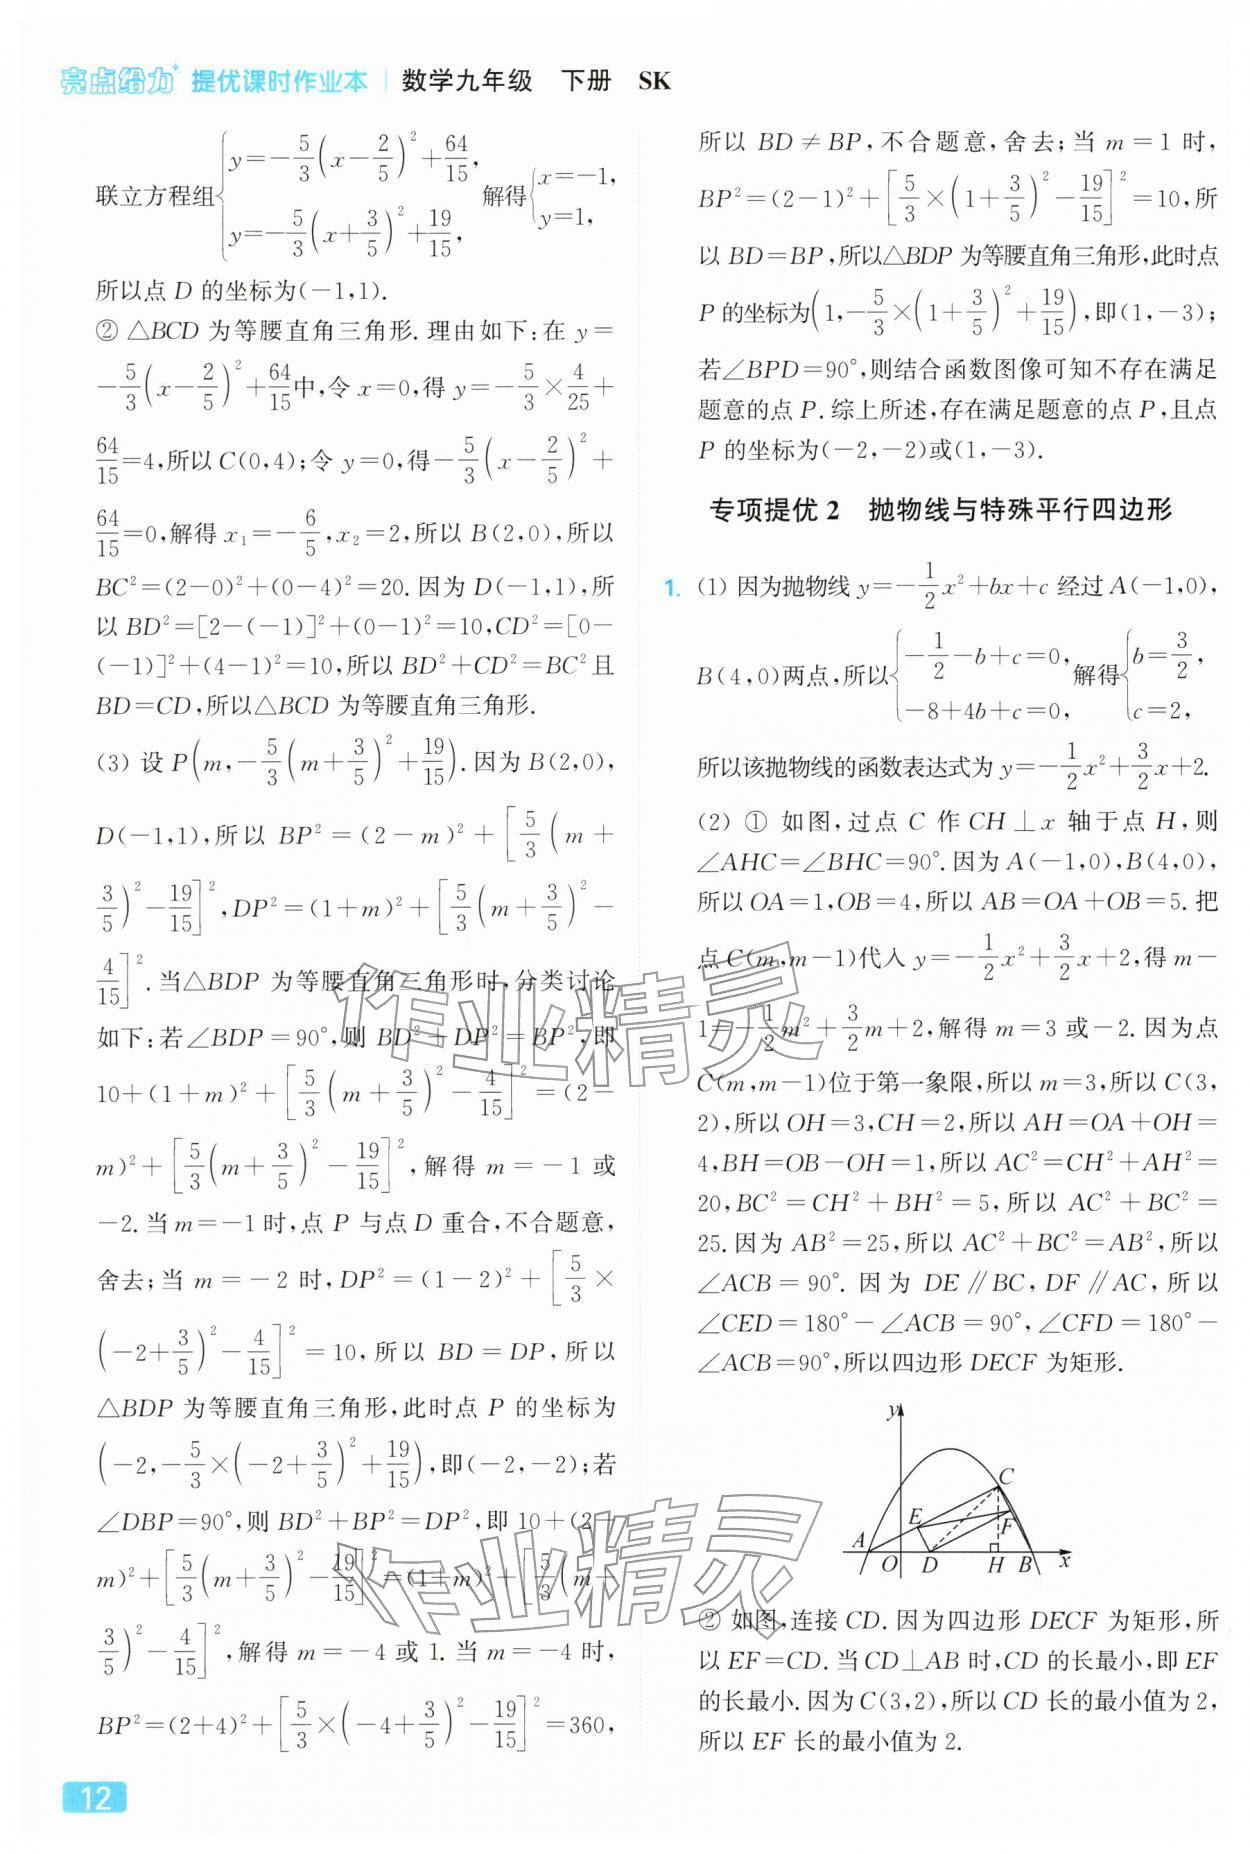 亮点给力 提优课时作业本 | 数学九年级 下册 SK
联立方程组{y=-5/3(x-2/5)²+64/15, y=-5/3(x+3/5)²+19/15, 解得{x=-1, y=1,
所以点 D 的坐标为(-1,1).
② △BCD 为等腰直角三角形.理由如下:在 y=
-5/3(x-2/5)²+64/15中,令 x=0,得 y=-5/3×4/25+
64/15=4,所以 C(0,4);令 y=0,得-5/3(x-2/5)²+
64/15=0,解得 x₁=-6/5,x₂=2,所以 B(2,0),所以
BC²=(2-0)²+(0-4)²=20.因为 D(-1,1),所
以 BD²=[2-(-1)]²+(0-1)²=10,CD²=[0-
(-1)]²+(4-1)²=10,所以 BD²+CD²=BC²且
BD=CD,所以△BCD 为等腰直角三角形.
(3) 设 P(m,-5/3(m+3/5)²+19/15).因为 B(2,0),
D(-1,1),所以 BP²=(2-m)²+[5/3(m+
3/5)²-19/15]²,DP²=(1+m)²+[5/3(m+3/5)²-
4/15]².当△BDP 为等腰直角三角形时,分类讨论
如下:若∠BDP=90°,则 BD²+DP²=BP²,即
10+(1+m)²+[5/3(m+3/5)²-4/15]²=(2-
m)²+[5/3(m+3/5)²-19/15]²,解得 m=-1 或
-2.当 m=-1 时,点 P 与点 D 重合,不合题意,
舍去;当 m=-2 时,DP²=(1-2)²+[5/3×
(-2+3/5)²-4/15]²=10,所以 BD=DP,所以
△BDP 为等腰直角三角形,此时点 P 的坐标为
(-2,-5/3×(-2+3/5)²+19/15),即(-2,-2);若
∠DBP=90°,则 BD²+BP²=DP²,即 10+(2-
m)²+[5/3(m+3/5)²-19/15]²=(1+m)²+[5/3(m+
3/5)²-4/15]²,解得 m=-4 或 1.当 m=-4 时,
BP²=(2+4)²+[5/3×(-4+3/5)²-19/15]²=360,
所以 BD≠BP,不合题意,舍去;当 m=1 时,
BP²=(2-1)²+[5/3×(1+3/5)²-19/15]²=10,所
以 BD=BP,所以△BDP 为等腰直角三角形,此时点
P 的坐标为(1,-5/3×(1+3/5)²+19/15),即(1,-3);
若∠BPD=90°,则结合函数图像可知不存在满足
题意的点 P.综上所述,存在满足题意的点 P,且点
P 的坐标为(-2,-2)或(1,-3).
专项提优 2 抛物线与特殊平行四边形
1. (1) 因为抛物线 y=-1/2x²+bx+c 经过 A(-1,0),
B(4,0)两点,所以{-1/2-b+c=0, -8+4b+c=0, 解得{b=3/2, c=2,
所以该抛物线的函数表达式为 y=-1/2x²+3/2x+2.
(2) ① 如图,过点 C 作 CH⊥x 轴于点 H,则
∠AHC=∠BHC=90°.因为 A(-1,0),B(4,0),
所以 OA=1,OB=4,所以 AB=OA+OB=5.把
点 C(m,m-1)代入 y=-1/2x²+3/2x+2,得 m-
1=-1/2m²+3/2m+2,解得 m=3 或-2.因为点
C(m,m-1)位于第一象限,所以 m=3,所以 C(3,
2),所以 OH=3,CH=2,所以 AH=OA+OH=
4,BH=OB-OH=1,所以 AC²=CH²+AH²=
20,BC²=CH²+BH²=5,所以 AC²+BC²=
25.因为 AB²=25,所以 AC²+BC²=AB²,所以
∠ACB=90°.因为 DE∥BC,DF∥AC,所以
∠CED=180°-∠ACB=90°,∠CFD=180°-
∠ACB=90°,所以四边形 DECF 为矩形.
y
C
E
F
A
O
D
H
B
x
② 如图,连接 CD.因为四边形 DECF 为矩形,所
以 EF=CD.当 CD⊥AB 时,CD 的长最小,即 EF
的长最小.因为 C(3,2),所以 CD 长的最小值为 2,
所以 EF 长的最小值为 2.
12
作业精灵
作业精灵